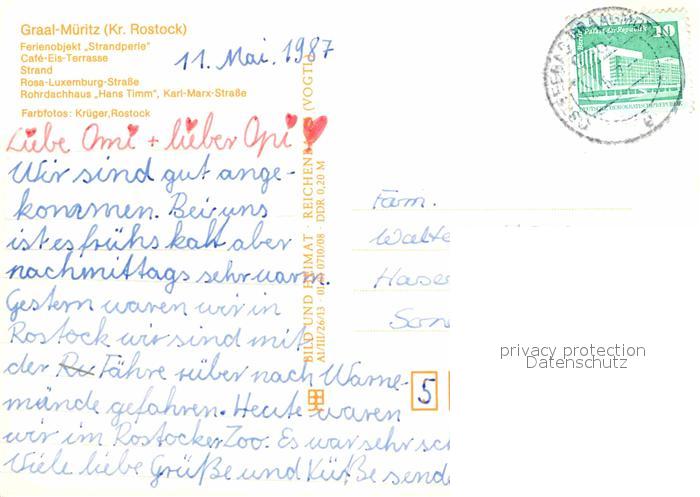 Graal-Müritz (Kr. Rostock)
Ferienobjekt „Strandperle"
Café-Eis-Terrasse
Strand
Rosa-Luxemburg-Straße
Rohrdachhaus „Hans Timm", Karl-Marx-Straße
Farbfotos: Krüger, Rostock
11. Mai. 1987
Liebe Omi + lieber Opi
Wir sind gut ange-
kommen. Bei uns
ist es frühs kalt aber
nachmittags sehr warm.
Gestern waren wir in
Rostock wir sind mit
der Fähre rüber nach Warne-
münde gefahren. Heute waren
wir im Rostocker Zoo. Es war sehr sc
Viele liebe Grüße und Küße sende
BILD UND HEIMAT · REICHENBACH (VOGTL
A1/III/26/13 01 0710/08 · DDR 0,20 M
Palast der Republik
10
DEUTSCHE DEMOKRATISCHE REPUBLIK
Fam.
Walte
5
privacy protection
Datenschutz